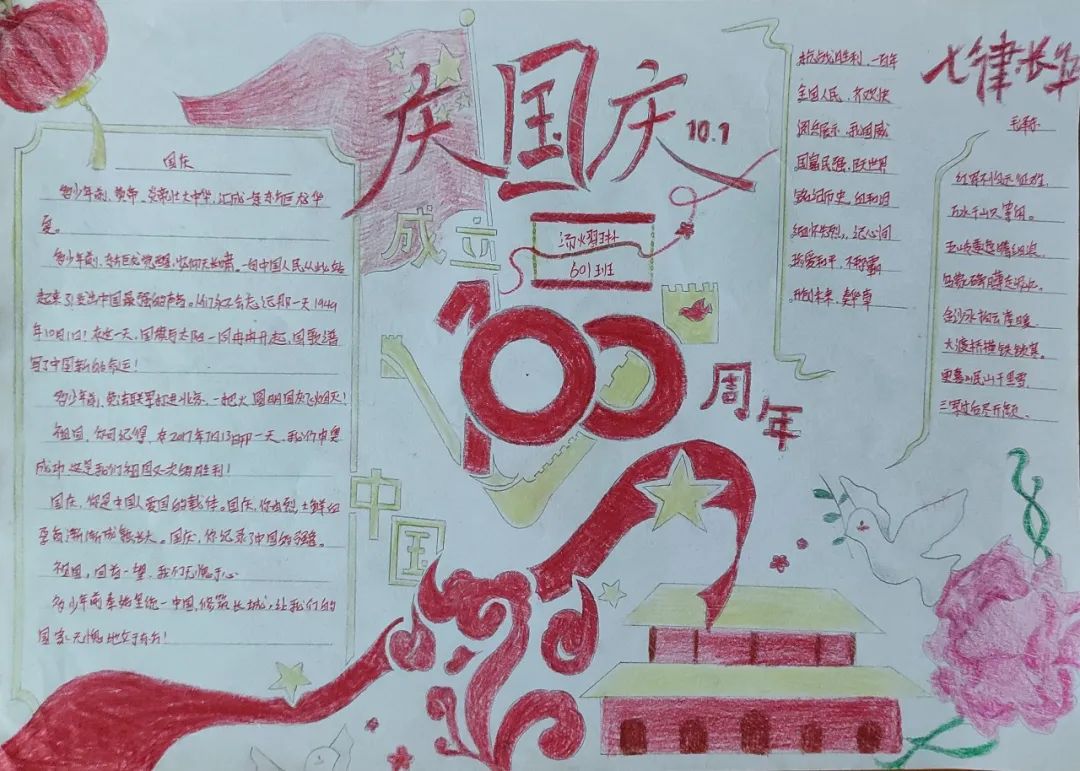 庆国庆
10.1
成立
601班
100
周年
中国
国庆
多少年前,黄帝、炎帝壮大中华,汇成一条东方巨龙华
夏。
多少年前,东方巨龙觉醒,仰仰天长啸,一句中国人民从此站
起来了!发出中国最强的声音。人们永不会忘记那一天1949
年10月1日!在这一天,国旗与太阳一同冉冉升起,国歌谱
写了中国新的命运!
多少年前,英法联军打进北京,一把火圆明园灰飞烟灭!
祖国,你可记得,在2017年7月13日那一天,我们申奥
成功,这是我们祖国又一次的胜利!
国庆,你是中国人爱国的载体。国庆,你由烈士鲜血
孕育渐渐成熟长大。国庆,你记录了中国的道路。
祖国,回首一望,我们无愧于心
多少年前秦始皇统一中国,修筑长城,让我们的
国家无愧地处于东方!
抗战胜利,一百年
全国人民,齐欢快
阅兵展示,我国威
国富民强,跃世界
铭记历史,血和泪
缅怀先烈,记心间
珍爱和平,不称霸
开创未来,奏华章
七律·长征
毛泽东
红军不怕远征难,
万水千山只等闲。
五岭逶迤腾细浪,
乌蒙磅礴走泥丸。
金沙水拍云崖暖,
大渡桥横铁索寒。
更喜岷山千里雪
三军过后尽开颜。